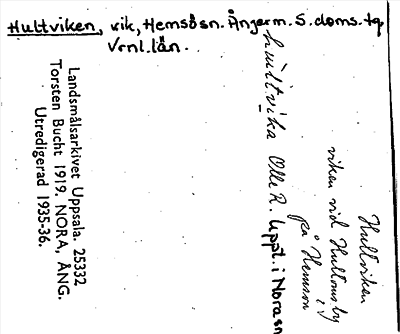 Hultviken, vik, Hemsösn. Ångerm. S. doms. tg
Vrnl. län.
Hultviken
viken vid Hultoms by
på Hemsön
Olle R. Uppl. i Nora sn
Landsmålsarkivet Uppsala. 25332
Torsten Bucht 1919. NORA, ÅNG.
Utredigerad 1935-36.